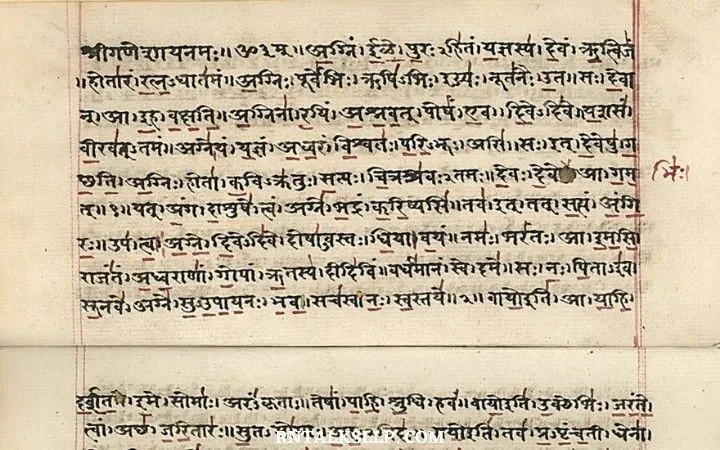 श्रीगणेशायनमः॥ ॐ३म्॥ अग्निं। ईळे। पुरःऽहितं। यज्ञस्य। देवं। ऋत्विजं
॥होतारं। रत्नऽधातमं॥ अग्निः। पूर्वेभिः। ऋषिऽभिः। ईड्यः। नूतनैः। उत॥ सः। देवा
न्। आ। इह। वक्षति॥ अग्निना। रयिं। अश्नवत्। पोषं। एव। दिवेऽदिवे॥ यशसं
वीरवत्ऽतमं॥ अग्ने। यं। यज्ञं। अध्वरं। विश्वतः। परिऽभूः। असि॥ सः। इत्। देवेषु। ग
च्छति॥ अग्निः। होता। कविऽक्रतुः। सत्यः। चित्रश्रवःऽतमः॥ देवः। देवे आ। गम भिः।
त्॥१॥ यत्। अंग। दाशुषे। त्वं। अग्ने। भद्रं। करिष्यसि॥ तव। इत्। तत्। सत्यं। अंगि
रः॥ उप। त्वा। अग्ने। दिवेऽदिवे। दोषाऽवस्तः। धिया। वयं॥ नमः। भरंतः। आ। इमसि॥
राजंतं। अध्वराणां। गोपां। ऋतस्य। दीदिविं॥ वर्धमानं। स्वे। दमे॥ सः। नः। पिताऽइव।
सूनवे। अग्ने। सुऽउपायनः। भव॥ सचस्व। नः। स्वस्तये॥२॥ वायो इति। आ। याहि
इमे। सोमाः। अरंऽकृताः॥ तेषां। पाहि। श्रुधि। हवं॥ वायो इति। उक्थेभिः। जरंते
त्वां। अच्छ। जरितारः॥ सुतऽसोमाः। वायो इति। तव। प्रऽपृंचती। धेना
RNTALKSLLP.COM